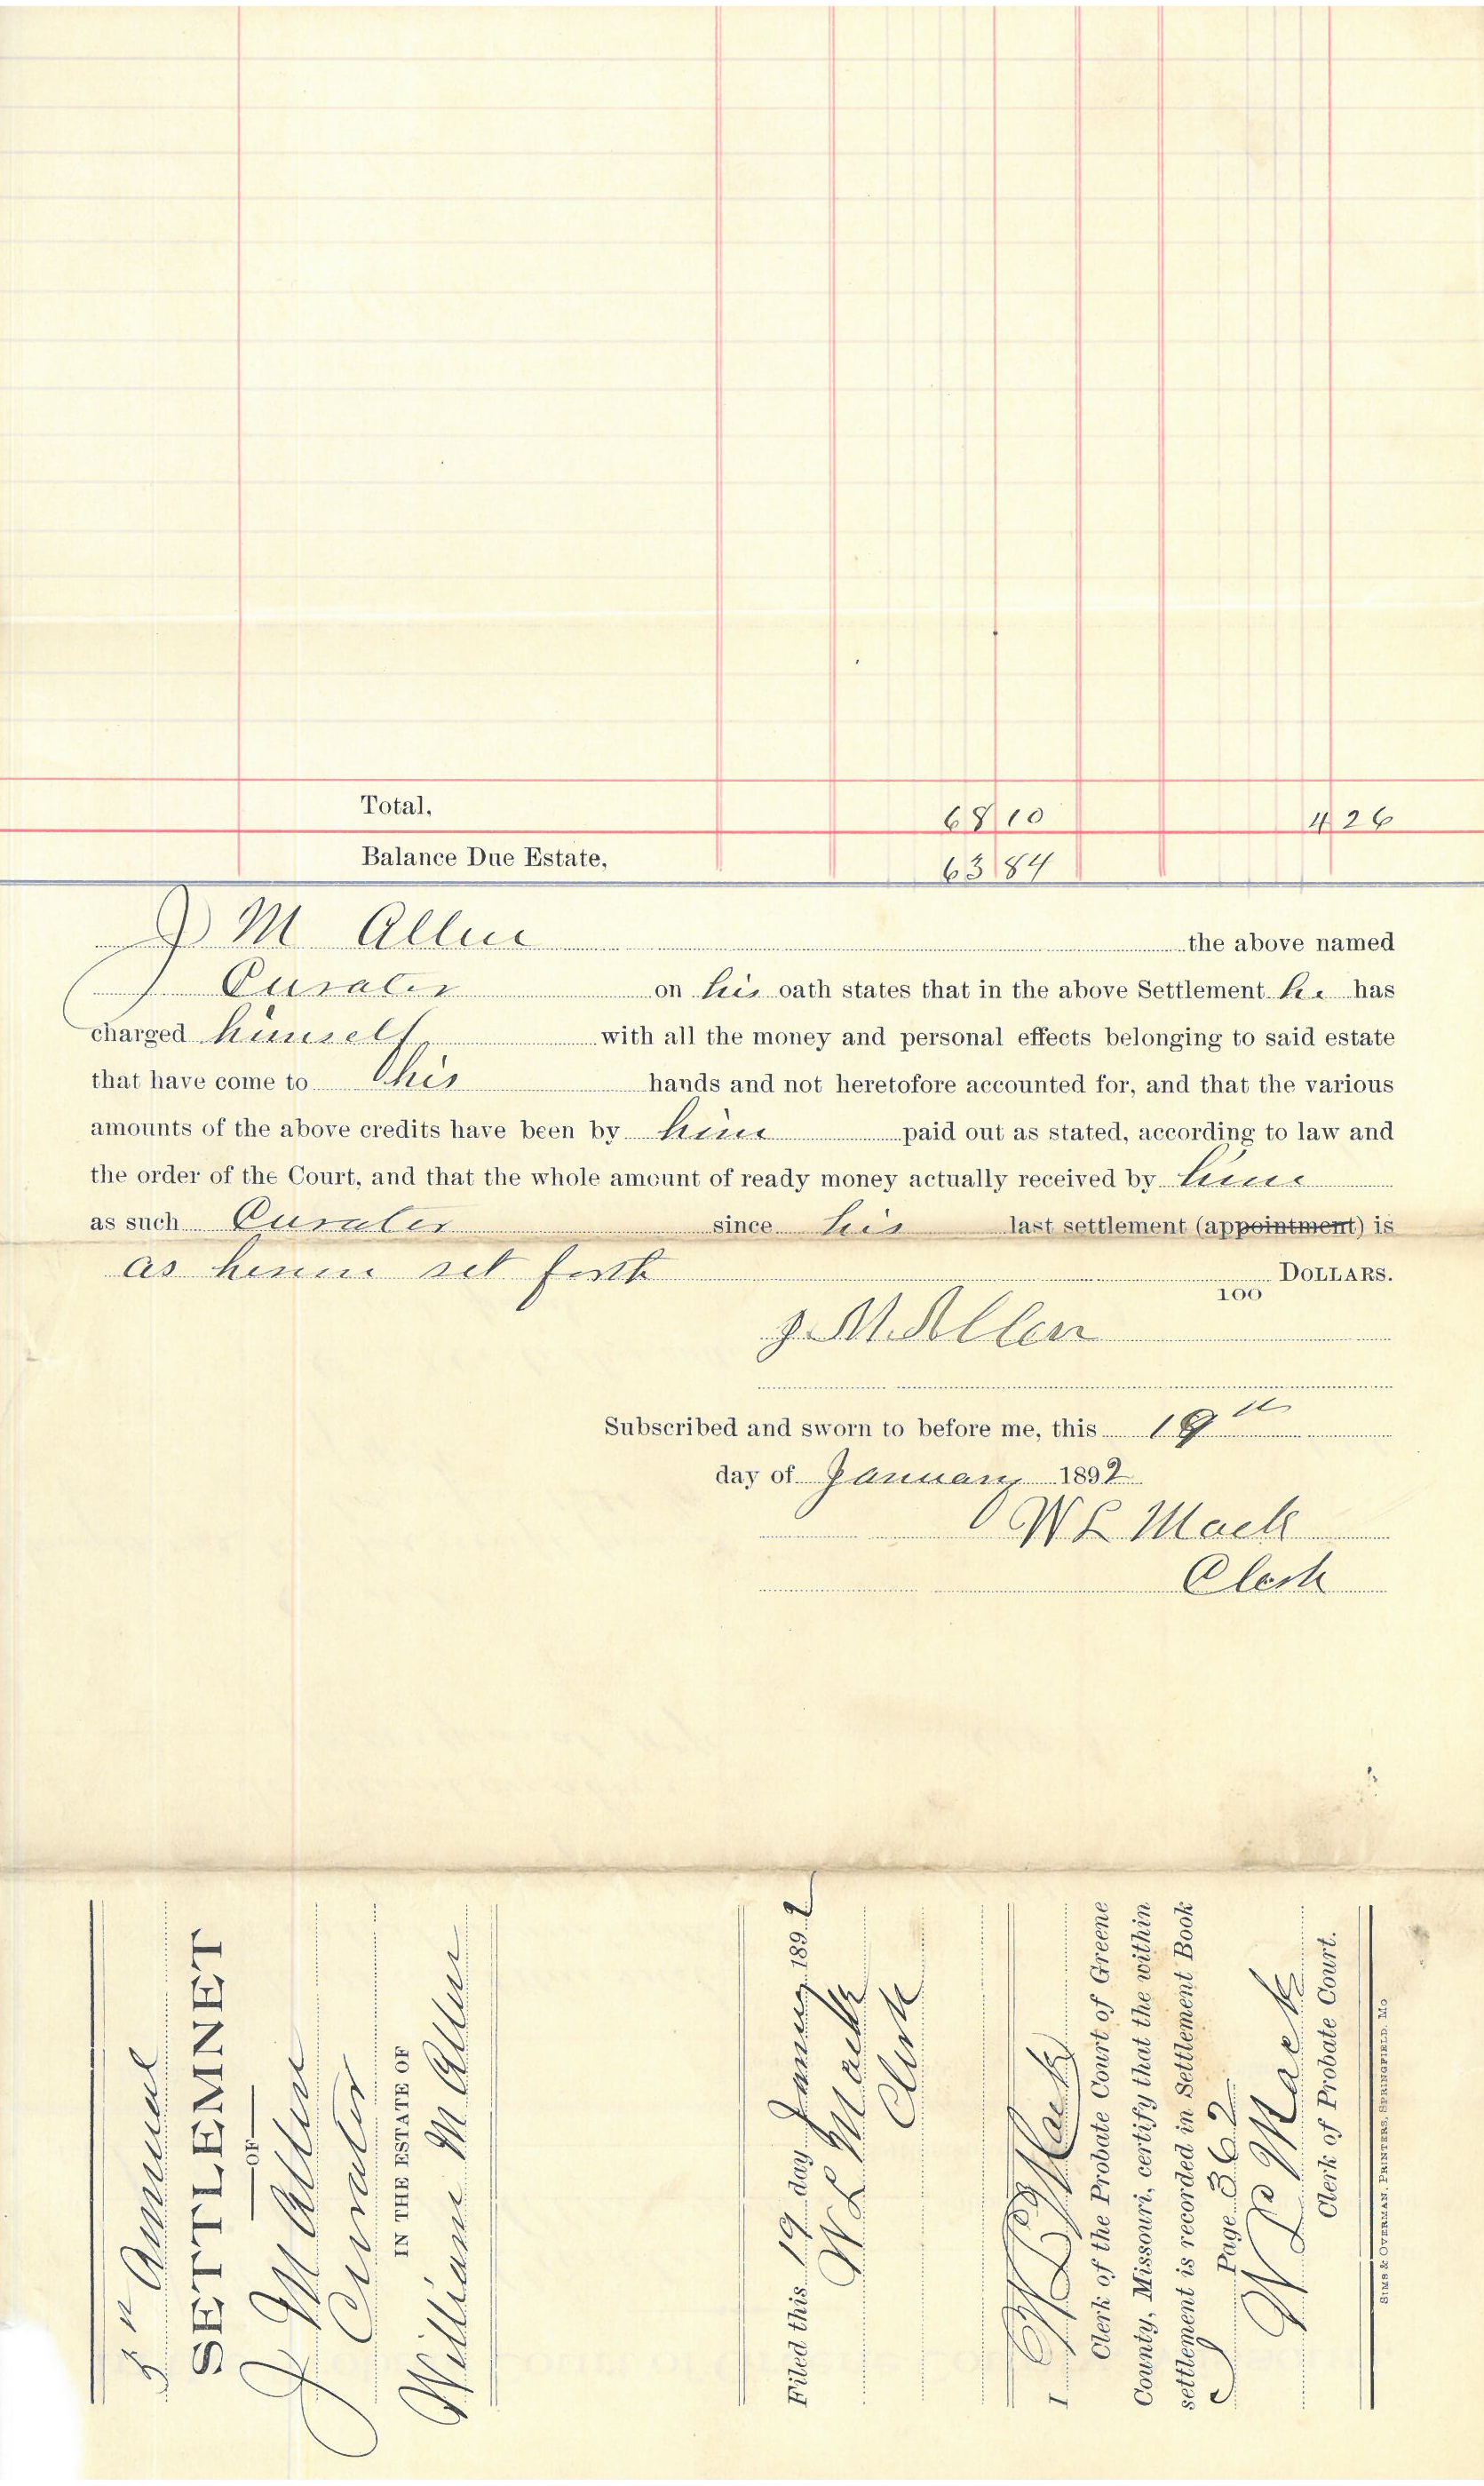 Total, 68 10 4 26
Balance Due Estate, 63 84
J M Allen the above named
Curator on his oath states that in the above Settlement he has
charged himself with all the money and personal effects belonging to said estate
that have come to his hands and not heretofore accounted for, and that the various
amounts of the above credits have been by him paid out as stated, according to law and
the order of the Court, and that the whole amount of ready money actually received by him
as such Curator since his last settlement (appointment) is
as herein set forth DOLLARS.
100
J. M. Allen
Subscribed and sworn to before me, this 19th
day of January 1892
W L Mack
Clerk
Annual
SETTLEMNET
OF
J M Allen
Curator
IN THE ESTATE OF
William M Allen
Filed this 19 day January 1892
W L Mack
Clerk
I W L Mack
Clerk of the Probate Court of Greene
County, Missouri, certify that the within
settlement is recorded in Settlement Book
Page 362
W L Mack
Clerk of Probate Court.
SIMS & OVERMAN, PRINTERS, SPRINGFIELD, MO